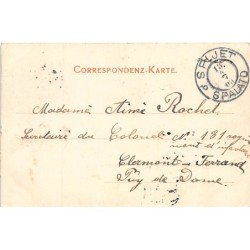 CORRESPONDENZ-KARTE.
SPLJET
SPALATO
Madame Aimé Rachel
du Colonel N° 131 régi
ment d'infrie
Clermont-Ferrand
Puy de Dome.